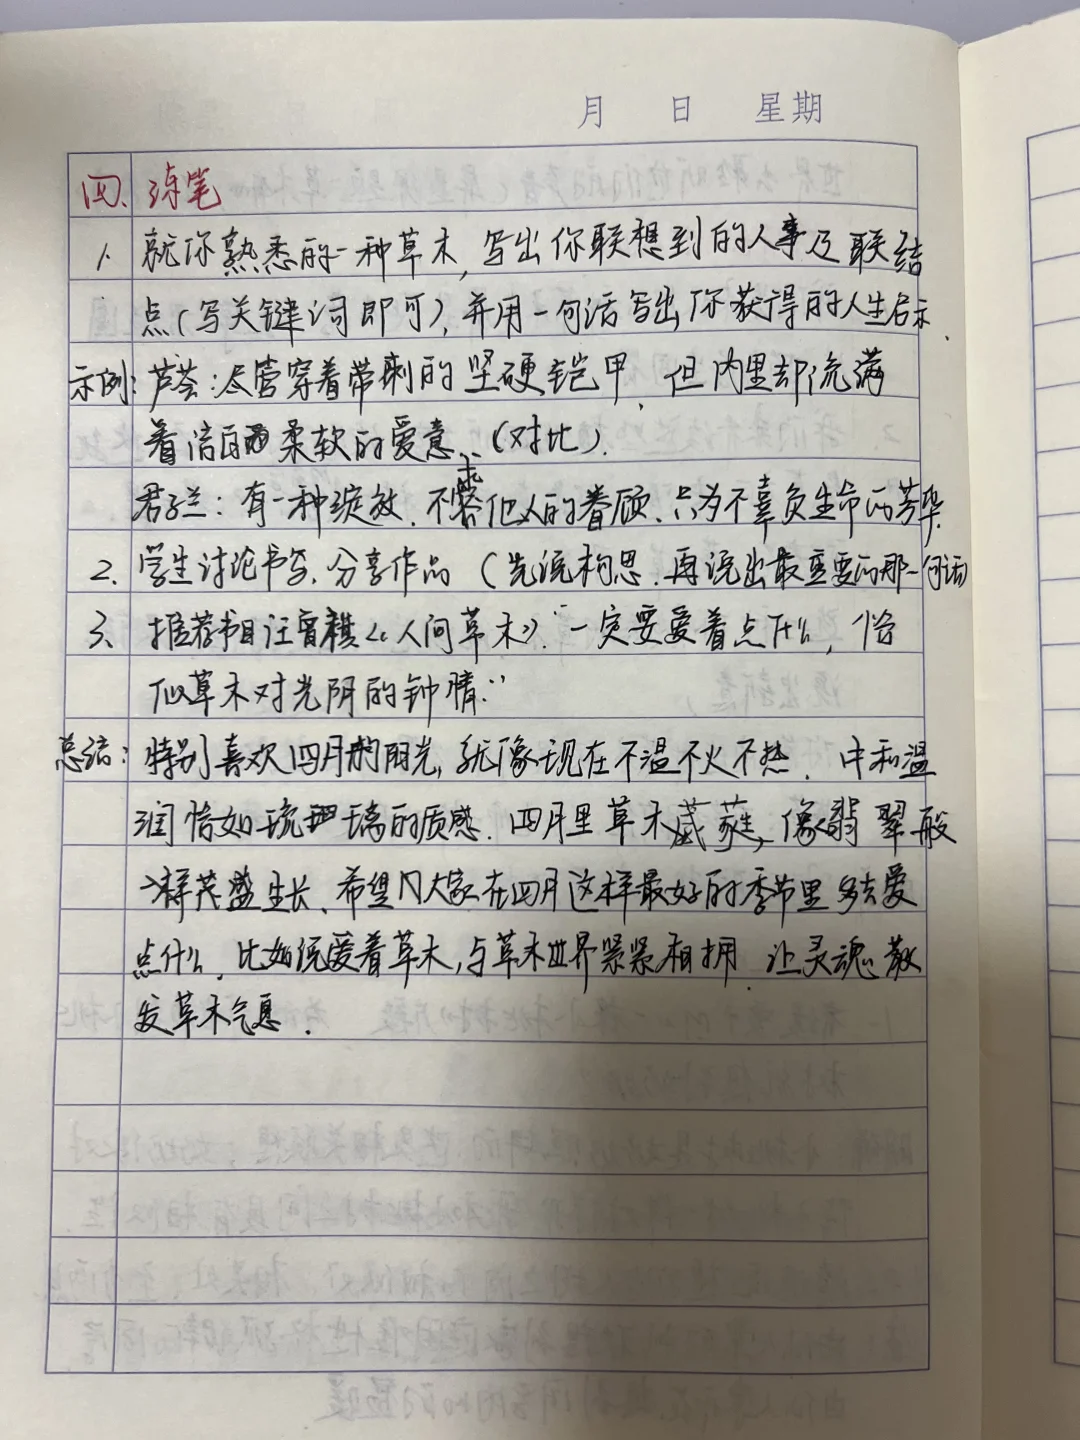 月 日 星期
四、练笔
1. 就你熟悉的一种草木,写出你联想到的人事及联结
点(写关键词即可),并用一句话写出你获得的人生启示.
示例:芦荟:尽管穿着带刺的坚硬铠甲,但内里却流满
着洁白柔软的爱意.(对比).
君子兰:有一种绽放.不求他人的眷顾.只为不辜负生命的芳华
2. 学生讨论书写.分享作品(先说构思.再说出最重要的那一句话)
3. 推荐书目汪曾祺《人间草木》.“一定要爱着点什么,恰
似草木对光阴的钟情.”
总结:特别喜欢四月的阳光,就像现在不温不火不热.中和温
润恰如琉璃的质感.四月里草木葳蕤,像翡翠般
一样茂盛生长、希望大家在四月这样最好的季节里多去爱
点什么.比如说爱着草木,与草木世界紧紧相拥.让灵魂散
发草木气息.